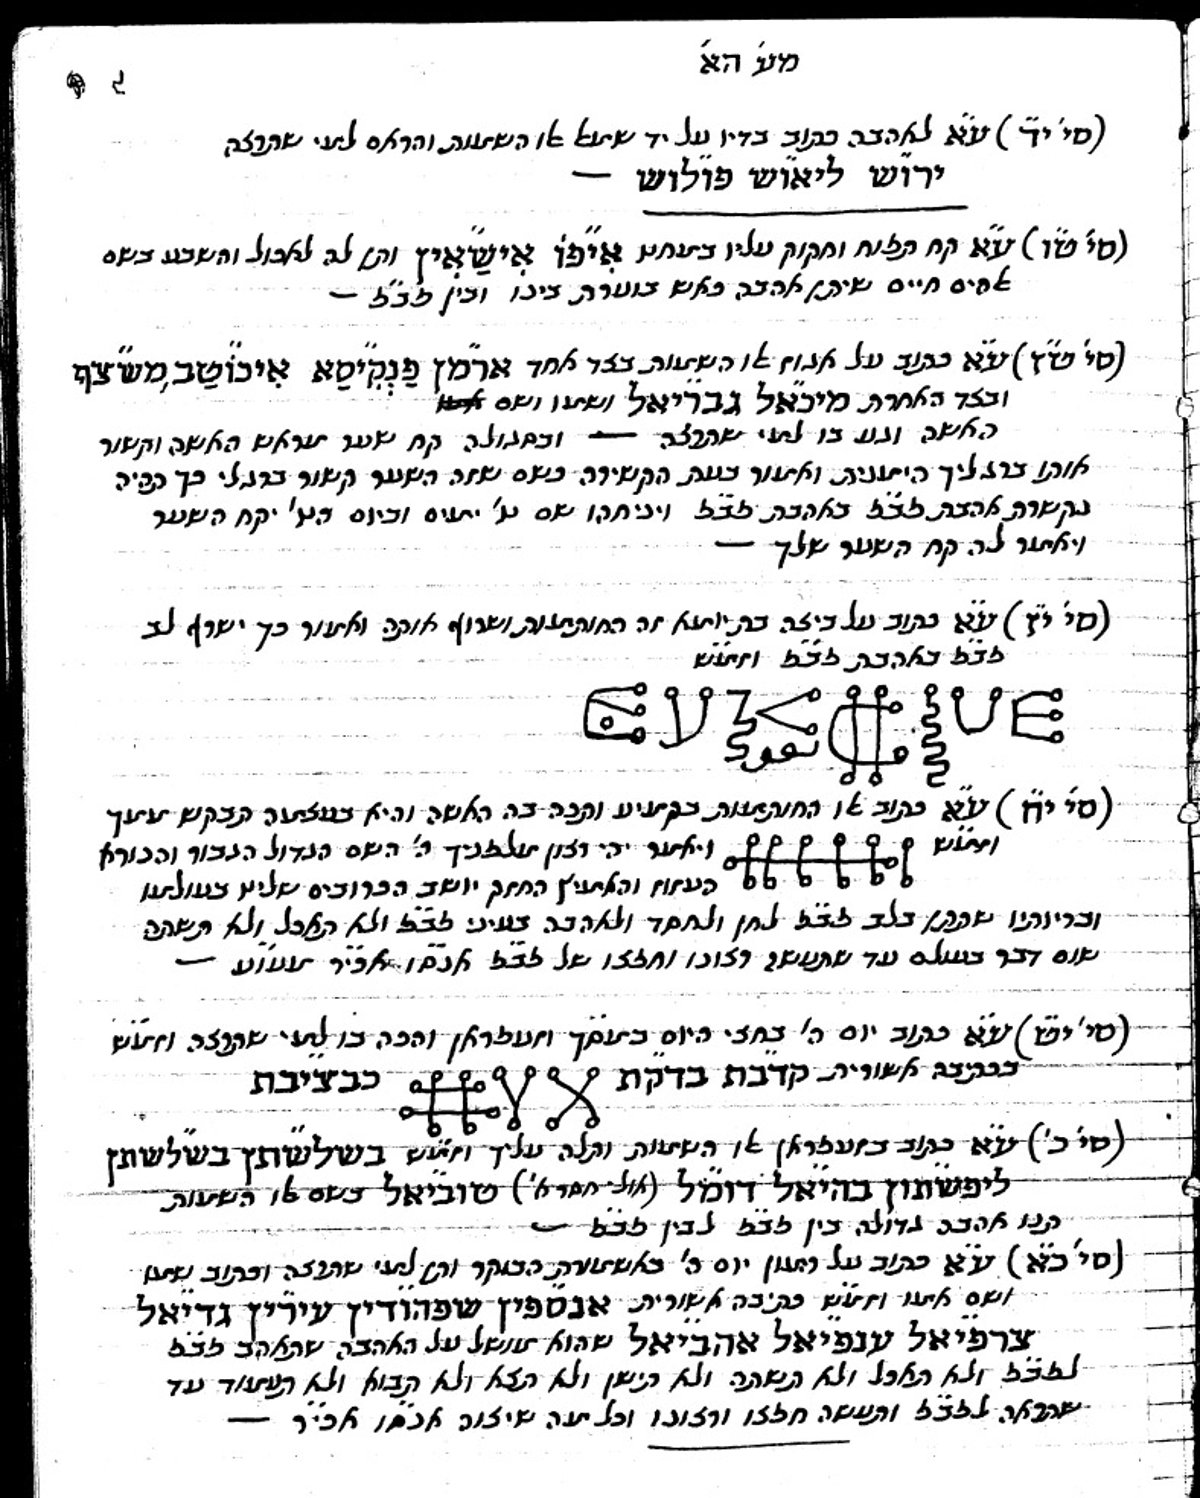 מע' הא'
(סי' י"ד) ע"א לאהבה כתוב בדיו על יד שמא או השמות והראם למי שתרצה
ירו"ש ליאו"ש פולו"ש —
(סי' ט"ו) ע"א קח תפוח וחקוק עליו במחט אִי"פוֹ אִישַׁ"אִיץ ותן לה לאכול והשבע בשם
אלהים חיים שיתן אהבה כאש בוערת בינו ובין זב"ז —
(סי' ט"ז) ע"א כתוב על אגוז או השמות בצד אחד אר"מן פַּנְקִי"טַא אִיכוֹ"טַב, מש"צף
ובצד האחרת מיכ"אל גבר"יאל ושמו ושם
האשה וגע בו למי שתרצה — ובסגולה קח שער מראש האשה וקשור
אותו ברגליך הימנית ואמור בעת הקשירה כשם שזה השער קשור ברגלי כך תהיה
נקשרת אהבת זב"ז באהבת זב"ז ויניחהו שם ט' ימים וביום הט' יקח השער
ויאמר לה קח השער שלך —
(סי' י"ז) ע"א כתוב על ביצה בת יומא זה החותמות ושרוף אותה ואמור כך ישרף לב
זב"ז באהבת זב"ז וזמ"ש
(סי' י"ח) ע"א כתוב או החותמות בקמיע ותכה בה האשה והיא בעצמה תבקש ממך
וזמ"ש ויאמר יהי רצון מלפניך ה' השם הגדול הגבור והנורא
העזוז והאמיץ החזק יושב הכרובים שליט בעולמו
ובריותיו שתתן בלב זב"ז לחן ולחסד ולאהבה בעיני זב"ז ולא תאכל ולא תשתה
שום דבר בעולם עד שתעשה רצונו וחפצו של זב"ז אנס"ו אכי"ר מעו"ע —
(סי' י"ט) ע"א כתוב יום ה' בחצי היום במסך וזעפראן והכה בו למי שתרצה וזמ"ש
בכתיבה אשורית קד"בת בד"קת כבצ"יבת
(סי' כ') ע"א כתוב בזעפראן או השמות ותלה עליך וזמ"ש בשלש"תן בש"לשתן
ליפש"תון בהי"אל דומ"ל (אולי חסר א') טוב"יאל בשם או השמות
תנו אהבה גדולה בין זב"ז לבין זב"ז —
(סי' כ"א) ע"א כתוב על רמון יום ה' באשמורת הבוקר ותן למי שתרצה וכתוב שמו
ושם אמו וזמ"ש כתיבה אשורית אנס"פין שפהו"דין עיר"יץ גד"יאל
צרפ"יאל ענפ"יאל אהב"יאל שהוא מושל על האהבה שתאהב זב"ז
לזב"ז ולא תאכל ולא תשתה ולא תישן ולא תצא ולא תבוא ולא תעמוד עד
שתבאה לזב"ז ותעשה חפצו ורצונו וכל מה שיצוה אנס"ו אכי"ר —